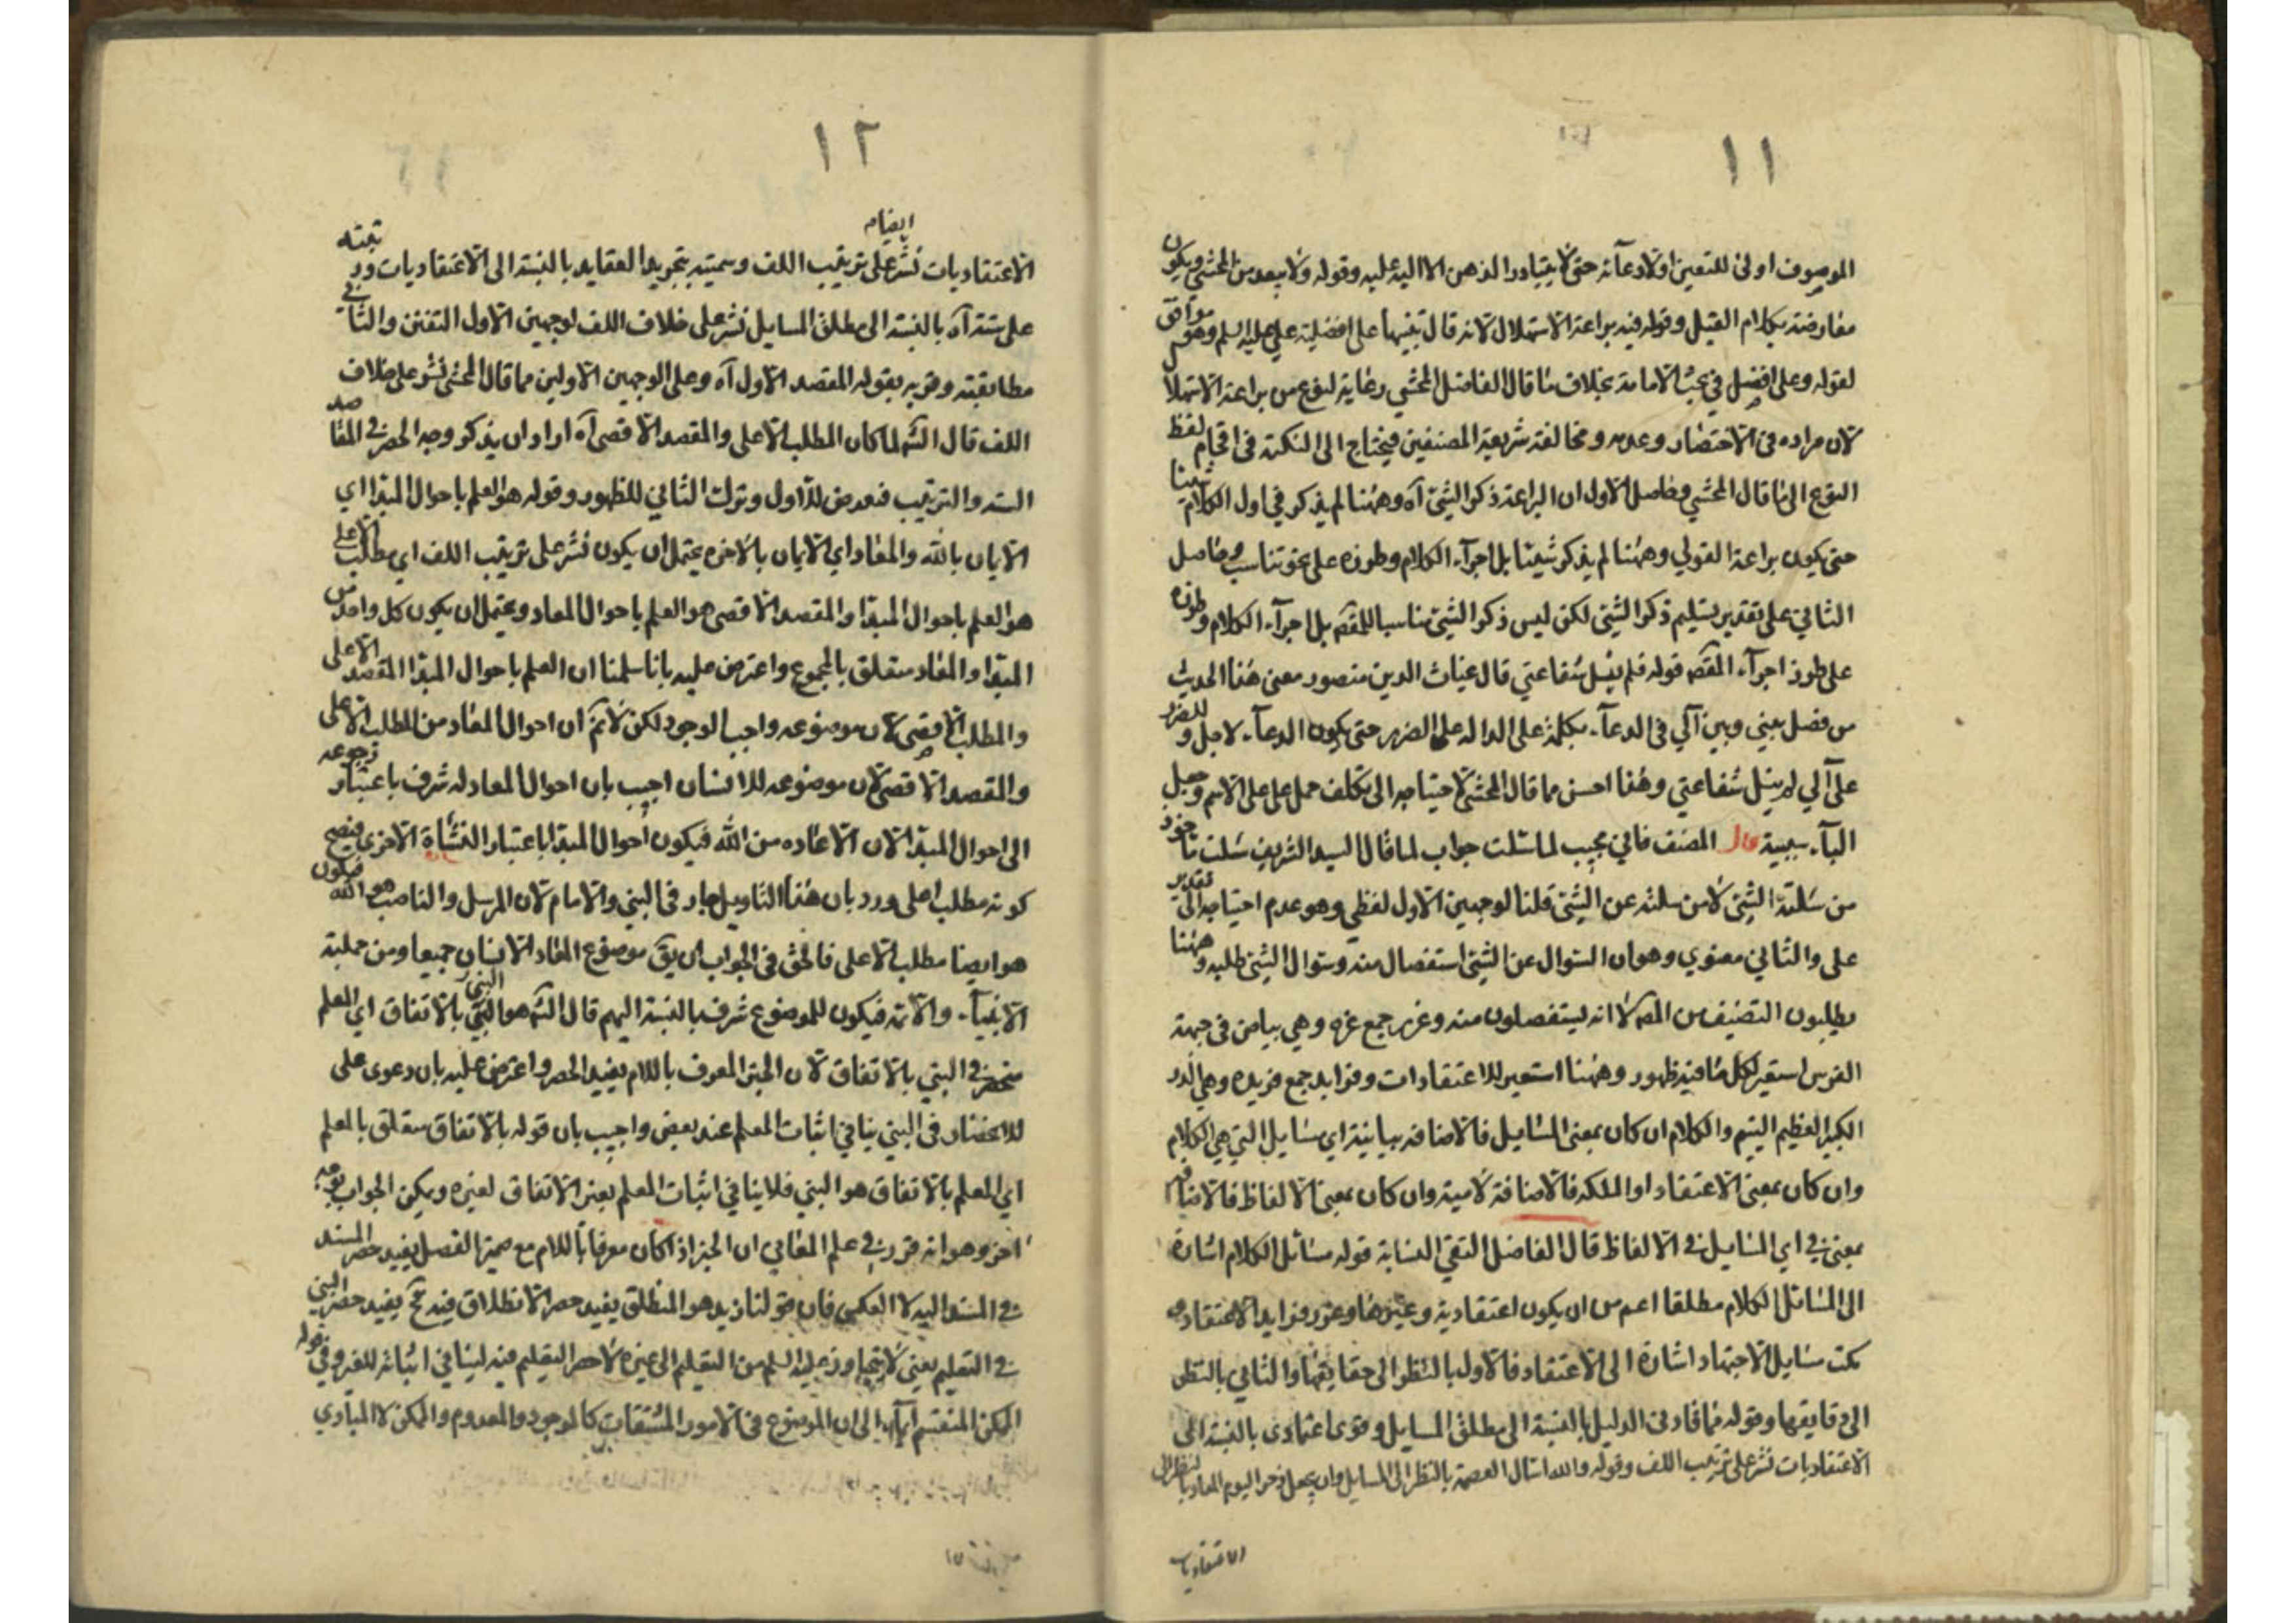 ١١
الموصوف اولى للتعين اولادعآئه حتى لا يتبادر الذهن الا اليه عليه وقوله ولا يبعد من المحشي ويكون
معارضته بكلام القيل وقوله فيه براعة الاستهلال لانه قال تنبيها على افضلية علي عليه السلم وهو موافق
لقوله وعلى افضل في بحث الامامة بخلاف ما قال الفاضل المحشي رعاية لنوع من براعة الاستهلال
لان مراده في الاختصار وعدمه ومخالفة شريعة المصنفين فيحتاج الى النكتة في اقحام لفظ
النوع الى ما قال المحشي وحاصل الاول ان البراعة ذكر الشئ آه وههنا لم يذكر في اول الكلام شيئا
حتى يكون براعة القولي وههنا لم يذكر شيئا بل اجرآء الكلام وطوره على نحو تناسب وحاصل
الثاني على تقدير تسليم ذكر الشئ لكن ليس ذكر الشئ مناسبا للمقصد بل اجرآء الكلام وطوره
على طرز اجرآء المقصد قوله فلم ينل شفاعتي قال غياث الدين منصور معنى هذا الحديث
من فصل بيني وبين آلي في الدعآء بكلمة على الدالة على الضرر حتى يكون الدعآء لاجلي وللضرر
على آلي لم ينل شفاعتي وهذا احسن مما قال المحشي لاحتياجه الى تكلف حمل على على الاسم وجعل
البآء سببية قال المصنف فاني مجيب لما سئلت جواب لما قال السيد الشريف سئلت مأخوذ
من سئلته الشئ لا من سئلته عن الشئ قلنا لوجهين الاول لفظي وهو عدم احتياجه الى تقدير
على والثاني معنوي وهو ان السوال عن الشئ استفصال منه وسوال الشئ طلبه وههنا
يطلبون التصنيف من المص لا انه يستفصلون منه وغرر جمع غره وهي بياض في جبهة
الفرس استعير لكل ما فيه ظهور وههنا استعير للاعتقادات وفرايد جمع فريده وهي الدر
الكبير العظيم اليتيم والكلام ان كان بمعنى المسايل فالاضافه بيانية اي مسايل التي هي الكلام
وان كان بمعنى الاعتقاد او الملكه فالاضافة لامية وان كان بمعنى الالفاظ فالاضافه
بمعنى في اي المسايل في الالفاظ قال الفاضل التقي النسابة قوله مسائل الكلام اشارة
الى المسائل الكلام مطلقا اعم من ان يكون اعتقادية وغيرها وغرر فرايد الاعتقاد
نكت مسايل الاجتهاد اشارة الى الاعتقاد فالاول بالنظر الى حقايقها والثاني بالنظر
الى دقايقها وقوله مما قاد في الدليل بالنسبة الى مطلق المسايل وقوى اعتمادي بالنسبة الى
الاعتقاديات نشر على ترتيب اللف وقوله والله اسال العصمة بالنظر الى المسايل وان يجعل ذخرا ليوم المعاد بالنظر الى
الاعتقاديات
١٢
الاعتقاديات نشر على ترتيب اللف وسميته بتجريد العقايد بالنسبة الى الاعتقاديات ورتبته
على ستة آه بالنسبة الى مطلق المسايل نشر على خلاف اللف لوجهين الاول التفنن والثاني
مطابقته وقربه بقوله المقصد الاول آه وعلى الوجهين الاولين مما قال المحشي نشر على خلاف
اللف قال الشه لما كان المطلب الاعلى والمقصد الاقصى آه اراد ان يذكر وجه الحصر في المقاصد
السته والترتيب فتعرض للاول وترك الثاني للظهور وقوله هو العلم باحوال المبدا اي
الايمان بالله والمعاد اي الايمان بالاخره يحتمل ان يكون نشر على ترتيب اللف اي مطلب الاعلى
هو العلم باحوال المبدا والمقصد الاقصى هو العلم باحوال المعاد ويحتمل ان يكون كل واحد من
المبدا والمعاد متعلق بالمجموع واعترض عليه بانا سلمنا ان العلم باحوال المبدا المقصد الاعلى
والمطلب الاقصى لان موضوعه واجب الوجود لكن لانم ان احوال المعاد من المطلب الاعلى
والمقصد الاقصى لان موضوعه للانسان اجيب بان احوال المعاد له شرف باعتبار رجوعه
الى احوال المبدا لان الاعاده من الله فيكون احوال المبدا باعتبار النشاة الاخرى فيصح
كونه مطلب اعلى ورد بان هذا التاويل جار في النبي والامام لان المرسل والناصب هو الله فيكون
هو ايضا مطلب الاعلى فالحق في الجواب ان يق موضوع المعاد الانسان جميعا ومن جملته
الانبيآء والائمة فيكون للموضوع شرف بالنسبة اليهم قال الشه هو النبي بالاتفاق اي المعلم
منحصر في النبي بالاتفاق لان الخبر المعرف باللام يفيد الحصر واعترض عليه بان دعوى على
للانحصار في النبي ينافي اثبات المعلم عند بعض واجيب بان قوله بالاتفاق متعلق بالمعلم
اي المعلم بالاتفاق هو النبي فلا ينافي اثبات المعلم بغير الاتفاق لغيره ويمكن الجواب بوجه
اخر وهو انه قرر في علم المعاني ان الخبر اذا كان معرفا باللام مع ضمير الفصل يفيد حصر المسند
في المسند اليه لا العكس فان قولنا زيد هو المنطلق يفيد حصر الانطلاق فيه فح يفيد حصر النبي
في التعليم يعني لا يتجاوز عليه السلم من التعليم الى غيره لا حصر التعليم فيه لينافي اثباته للغير وفي قوله
الممكن المنقسم ايماء الى ان الموضوع في الامور المشتقات كالموجود والمعدوم والممكن لا المبادي